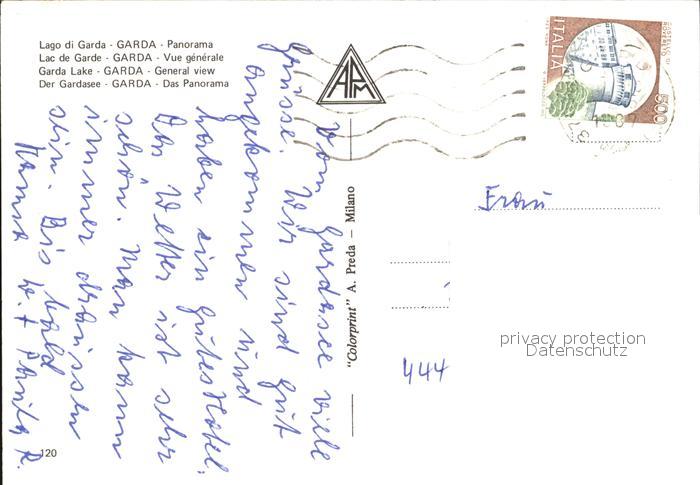 Lago di Garda - GARDA - Panorama
Lac de Garde - GARDA - Vue générale
Garda Lake - GARDA - General view
Der Gardasee - GARDA - Das Panorama
APM
ITALIA
500
Vom Gardasee viele
Grüsse. Wir sind gut
angekommen und
haben ein gutes Hotel.
Das Wetter ist sehr
schön. Man kann
immer draussen
sein. Bis bald
"Colorprint" A. Preda - Milano
Frau
444
privacy protection
Datenschutz
120